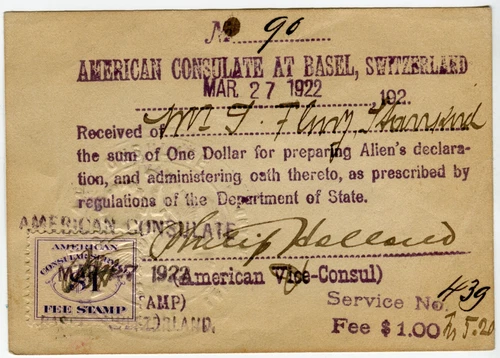 No 90
AMERICAN CONSULATE AT BASEL, SWITZERLAND
MAR 27 1922 , 192 .
Received of Mr
the sum of One Dollar for preparing Alien's declara-
tion, and administering oath thereto, as prescribed by
regulations of the Department of State.
AMERICAN CONSULATE
Philip Holland
(American Vice-Consul)
AMERICAN
CONSULAR SERVICE
$1
FEE STAMP
1922
(STAMP)
BASEL, SWITZERLAND.
Service No. 439
Fee $1.00 Fr 5.20